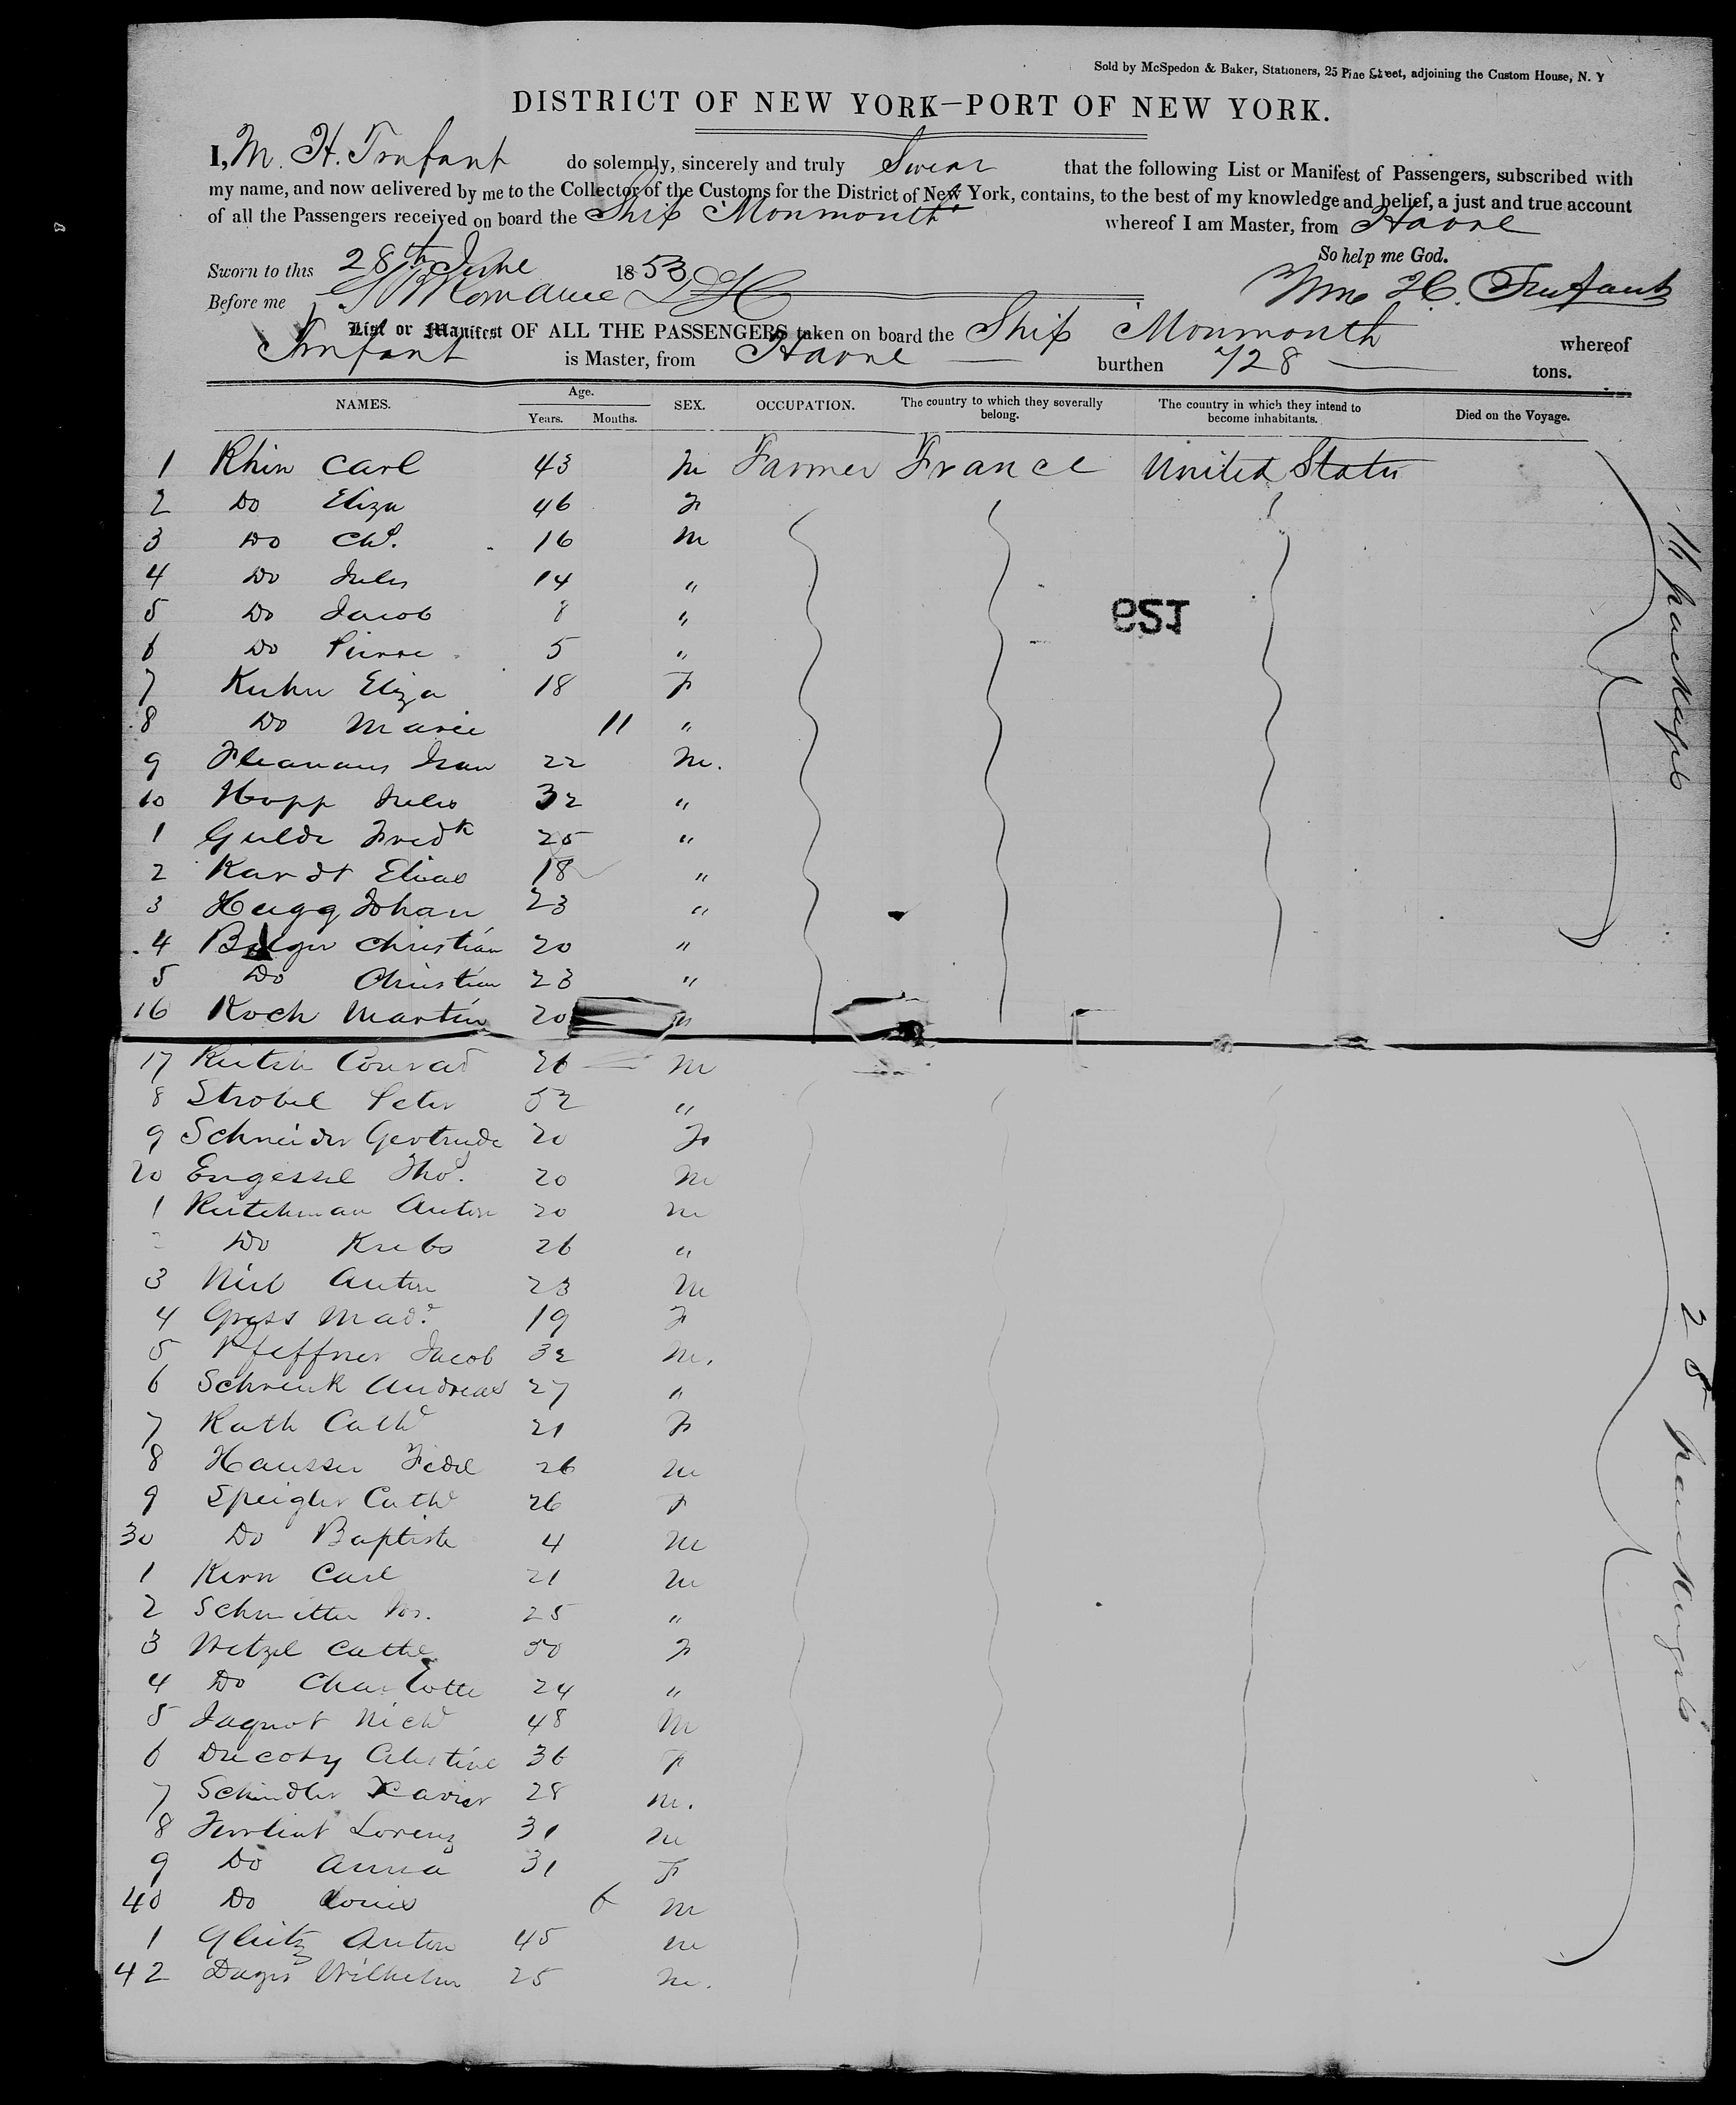 Sold by McSpedon & Baker, Stationers, 25 Pine Street, adjoining the Custom House, N. Y
DISTRICT OF NEW YORK—PORT OF NEW YORK.
I, M. H. Trufant do solemnly, sincerely and truly Swear that the following List or Manifest of Passengers, subscribed with
my name, and now delivered by me to the Collector of the Customs for the District of New York, contains, to the best of my knowledge and belief, a just and true account
of all the Passengers received on board the Ship Monmouth whereof I am Master, from Havre
So help me God.
Sworn to this 28th June 1853
Before me
Wm H. Trufant
List or Manifest OF ALL THE PASSENGERS taken on board the Ship Monmouth whereof
Trufant is Master, from Havre burthen 728 tons.
NAMES. Age. Years. Months. SEX. OCCUPATION. The country to which they severally belong. The country in which they intend to become inhabitants. Died on the Voyage.
1 Rhin Carl 43 M Farmer France United States
2 Do Eliza 46 F
3 Do Chs. 16 M
4 Do Jules 14 "
5 Do Jacob 8 "
6 Do Pierre 5 "
7 Kuhn Eliza 18 F
8 Do Marie 11 "
9 Jean 22 M.
10 Hopp Jules 32 "
1 Gulde Fredk 25 "
2 Kardt Elias 18 "
3 Hugg Johan 23 "
4 Christian 20 "
5 Do Christian 23 "
16 Koch Martin 20 "
17 Conrad 26 M
8 Strobel Peter 52 "
9 Schneider Gertrude 20 F
20 Engessel Thos. 20 M
1 Rutchman Anton 20 M
Do Krebs 26 "
3 Anton 23 M
4 Gross Mad. 19 F
5 Pfeffner Jacob 32 M.
6 Schrenk Andreas 27 "
7 Rath Cath 21 F
8 Hausser Fidel 26 M
9 Speigler Cath 26 F
30 Do Baptiste 4 M
1 Kern Carl 21 M
2 Schmitter Jos. 25 "
3 Wetzel Cathe 50 F
4 Do Charlotte 24 "
5 Jaquot Nichs 48 M
6 Celestine 36 F
7 Schindler Xavier 28 M.
8 Lorenz 31 M
9 Do Anna 31 F
40 Do Louis 6 M
1 Anton 45 M
42 Wilhelm 25 M.
11 packages
28 packages
159